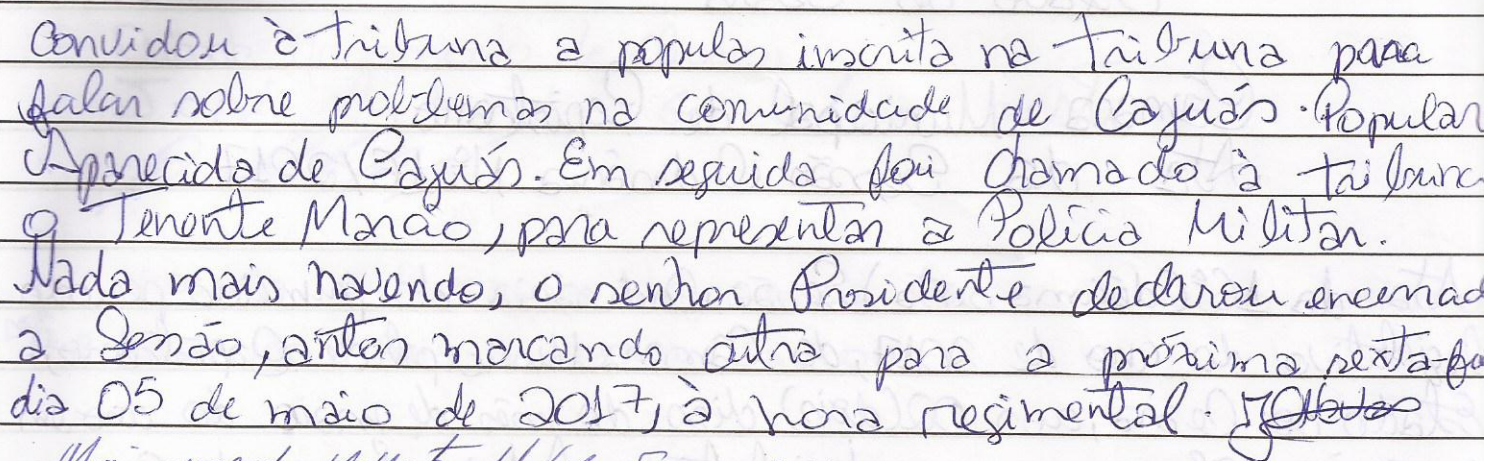 Convidou à tribuna a popular inscrita na tribuna para
falar sobre problemas na comunidade de Cajuás. Popular
Aparecida de Cajuás. Em seguida foi chamado à tribuna
o Tenente Marcão, para representar a Polícia Militar.
Nada mais havendo, o senhor Presidente declarou encerrad
a Sessão, antes marcando outra para a próxima sexta-fei
dia 05 de maio de 2017, à hora regimental.